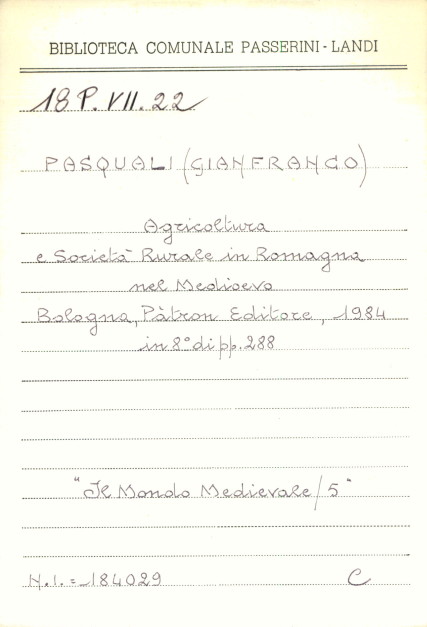 BIBLIOTECA COMUNALE PASSERINI-LANDI
18 P. VII. 22
PASQUALI (GIANFRANCO)
Agricoltura
e Società Rurale in Romagna
nel Medioevo
Bologna, Pàtron Editore, 1984
in 8° di pp. 288
"Il Mondo Medievale/5"
N.I. = 184029 C